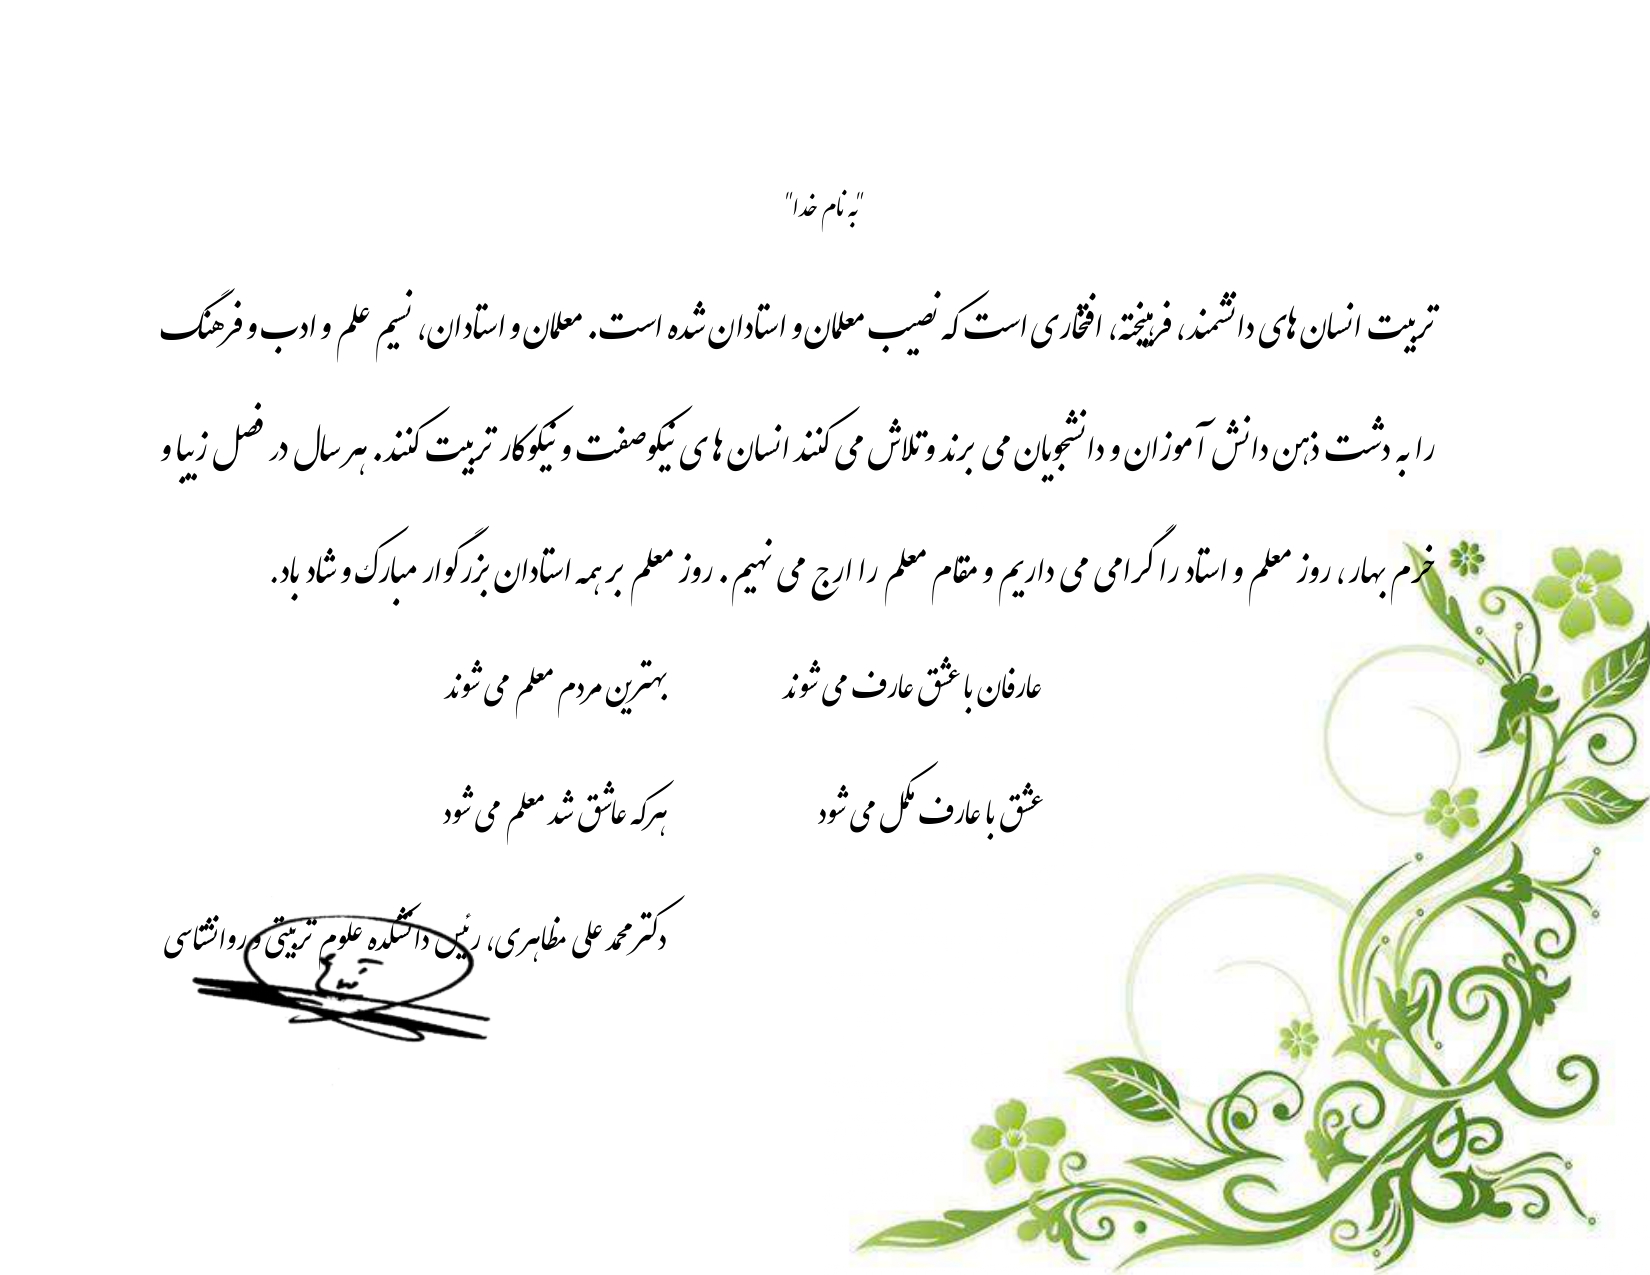 "به نام خدا"
تربیت انسان های دانشمند، فرهیخته، افتخاری است که نصیب معلمان و استادان شده است. معلمان و استادان، نسیم علم و ادب و فرهنگ
را به دشت ذهن دانش آموزان و دانشجویان می برند و تلاش می کنند انسان های نیکوصفت و نیکوکار تربیت کنند. هر سال در فصل زیبا و
خرم بهار، روز معلم و استاد را گرامی می داریم و مقام معلم را ارج می نهیم. روز معلم بر همه استادان بزرگوار مبارک و شاد باد.
عارفان با عشق عارف می شوند بهترین مردم معلم می شوند
عشق با عارف مکمل می شود هر که عاشق شد معلم می شود
دکتر محمد علی مظاهری، رئیس دانشکده علوم تربیتی و روانشناسی